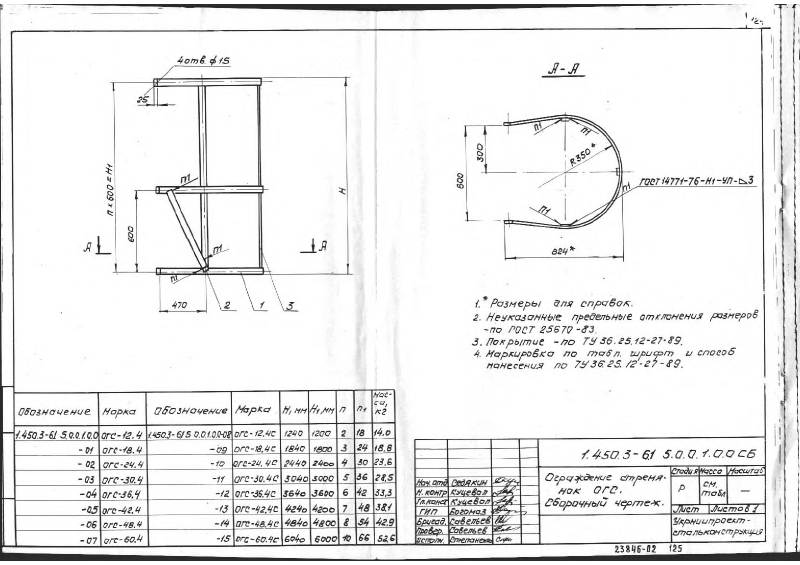 4 отв. ф15
25
п х 600 = Н1
600
Н
П1
П1
П1
А
А
470
2
1
3
А-А
П1
П1
R350*
600
300
ГОСТ 14771-76-Н1-УП-▷3
П1
П1
824*
1.* Размеры для справок.
2. Неуказанные предельные отклонения размеров
-по ГОСТ 25670-83.
3. Покрытие -по ТУ 36.25.12-27-89.
4. Маркировка по табл. шрифт и способ
нанесения по ТУ 36.25.12-27-89.
Обозначение Марка Обозначение Марка Н, мм Н1, мм п п1 Масса, кг
1.450.3-61 5.0.0.1.0.0 ОГС-12.4 1.450.3-61 5.0.0.1.0.0-08 ОГС-12.4С 1240 1200 2 18 14,0
-01 ОГС-18.4 -09 ОГС-18.4С 1840 1800 3 24 18,8
-02 ОГС-24.4 -10 ОГС-24.4С 2440 2400 4 30 23,6
-03 ОГС-30.4 -11 ОГС-30.4С 3040 3000 5 36 28,5
-04 ОГС-36.4 -12 ОГС-36.4С 3640 3600 6 42 33,3
-05 ОГС-42.4 -13 ОГС-42.4С 4240 4200 7 48 38,1
-06 ОГС-48.4 -14 ОГС-48.4С 4840 4800 8 54 42,9
-07 ОГС-60.4 -15 ОГС-60.4С 6040 6000 10 66 52,6
1.450.3-61 5.0.0.1.0.0СБ
Нач. отд Седякин
Н. контр Куцевол
Гл. констр Куцевол
ГИП Богомаз
Бригад. Савельев
Провер. Савельев
Исполн. Степаненко
Ограждение стремя-
нок ОГС.
Сборочный чертеж.
Стадия Масса Масштаб
Р см. табл —
Лист Листов 1
Укрниипроект-
стальконструкция
23846-02 125